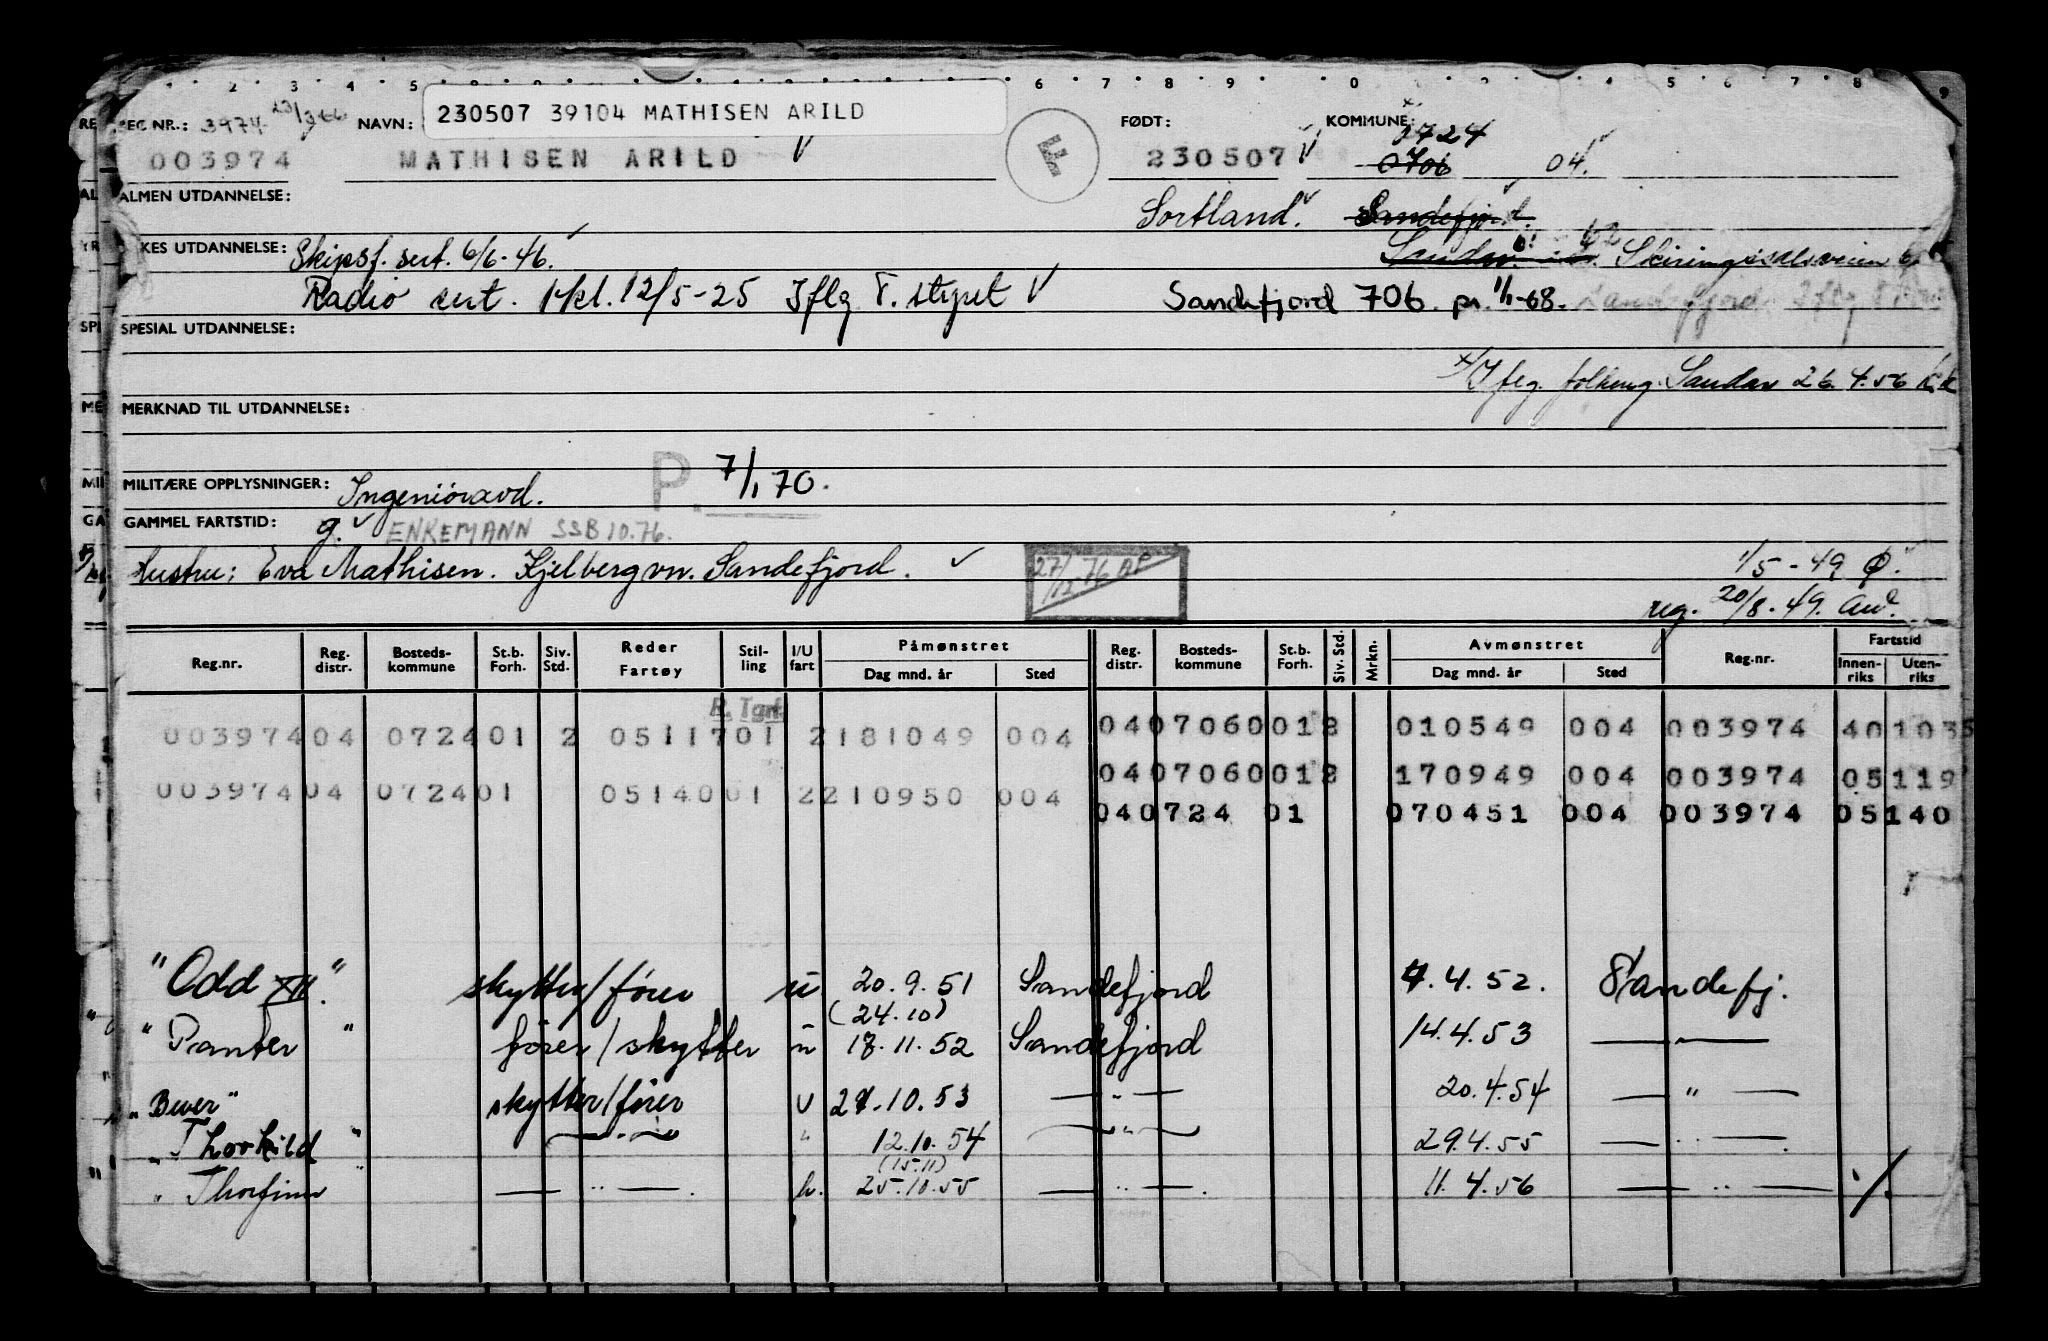 2 3 4 5 6 7 8 9 0 4 5 6 7 8 9
REG NR.: 3974 NAVN: 230507 39104 MATHISEN ARILD FØDT: KOMMUNE: 0724
003974 MATHISEN ARILD V F 230507 V 0706 04.
ALMEN UTDANNELSE: Sortland. Sandefjord.
YRKES UTDANNELSE: Skipsf. sert. 6/6-46. Sandar. Skiringssalsveien
Radio cert. 1 kl. 12/5-25 Iflg T. styret V Sandefjord 706. pr. 1/1-68. Sandefjord Iflg
SPESIAL UTDANNELSE:
x/ Iflg. folkereg. Sandar 26.4.56
MERKNAD TIL UTDANNELSE:
MILITÆRE OPPLYSNINGER: Ingeniöravd. P. 7/1 70.
GAMMEL FARTSTID: g. ENKEMANN SSB 10.76.
Hustru: Eva Mathisen. Kjelbergvn. Sandefjord. 27/12-76 AP 1/5-49
reg. 20/8.49.
Reg.nr. Reg. distr. Bosteds-kommune St.b. Forh. Siv. Std. Reder Fartøy Stil-ling I/U fart Påmønstret Dag mnd. år Sted Reg. distr. Bosteds-kommune St.b. Forh. Siv. Std. Mrkn. Avmønstret Dag mnd. år Sted Reg.nr. Fartstid Innen-riks Uten-riks
R. Tgrf
003974 04 0724 01 2 05117 01 2 181049 004 04 0706 001 2 010549 004 003974 40 1035
04 0706 001 2 170949 004 003974 05119
003974 04 0724 01 05140 01 2 210950 004 04 0724 01 070451 004 003974 05140
"Odd XII". skytter/fører u 20.9.51 Sandefjord 4.4.52. Sandefj.
(24.10)
"Panter" fører/skytter u 17.11.52 Sandefjord 14.4.53 — " —
"Bever" skytter/fører u 27.10.53 — " — 20.4.54 — " —
"Thorkild" — " — " 12.10.54 — " — 29.4.55 — " —
(15.11)
"Thorfinn" — " — . u. 25.10.55 — " — . 11.4.56 — " — ·/.